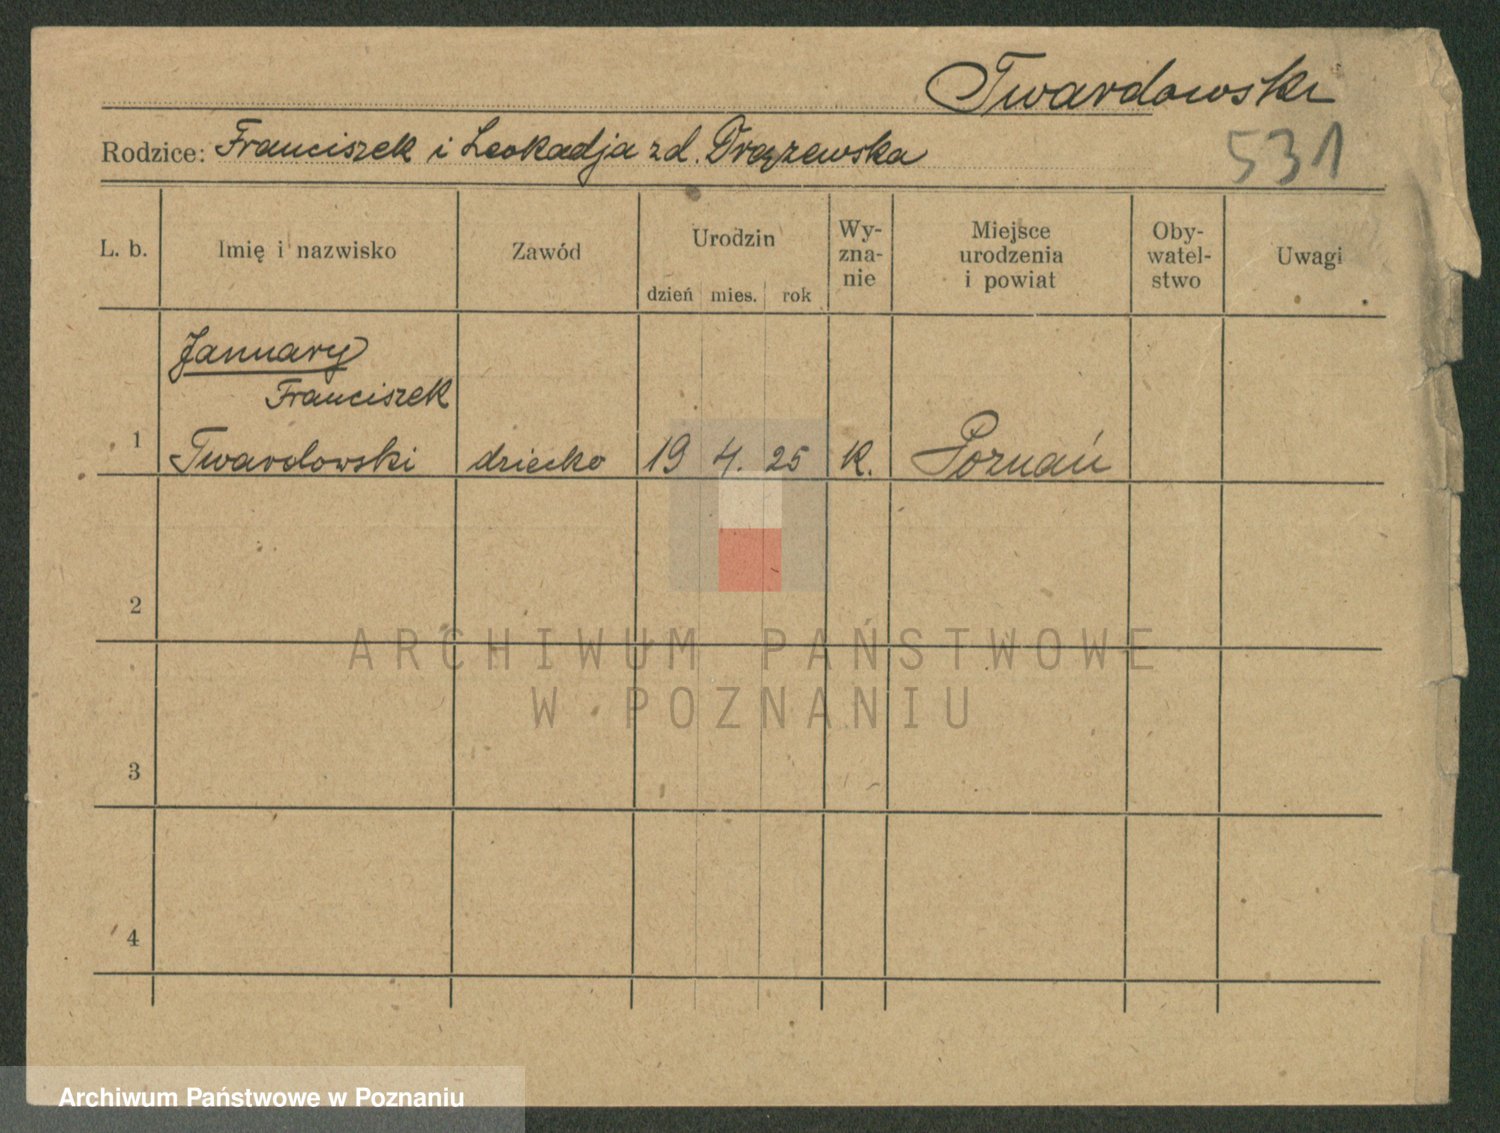 Twardowski
531
Rodzice: Franciszek i Leokadja zd. Drążewska
L. b.
Imię i nazwisko
Zawód
Urodzin
dzień mies. rok
Wy-
zna-
nie
Miejsce
urodzenia
i powiat
Oby-
watel-
stwo
Uwagi
January
Franciszek
1 Twardowski dziecko 19 4. 25 k. Poznań
2
ARCHIWUM PAŃSTWOWE
W POZNANIU
3
4
Archiwum Państwowe w Poznaniu